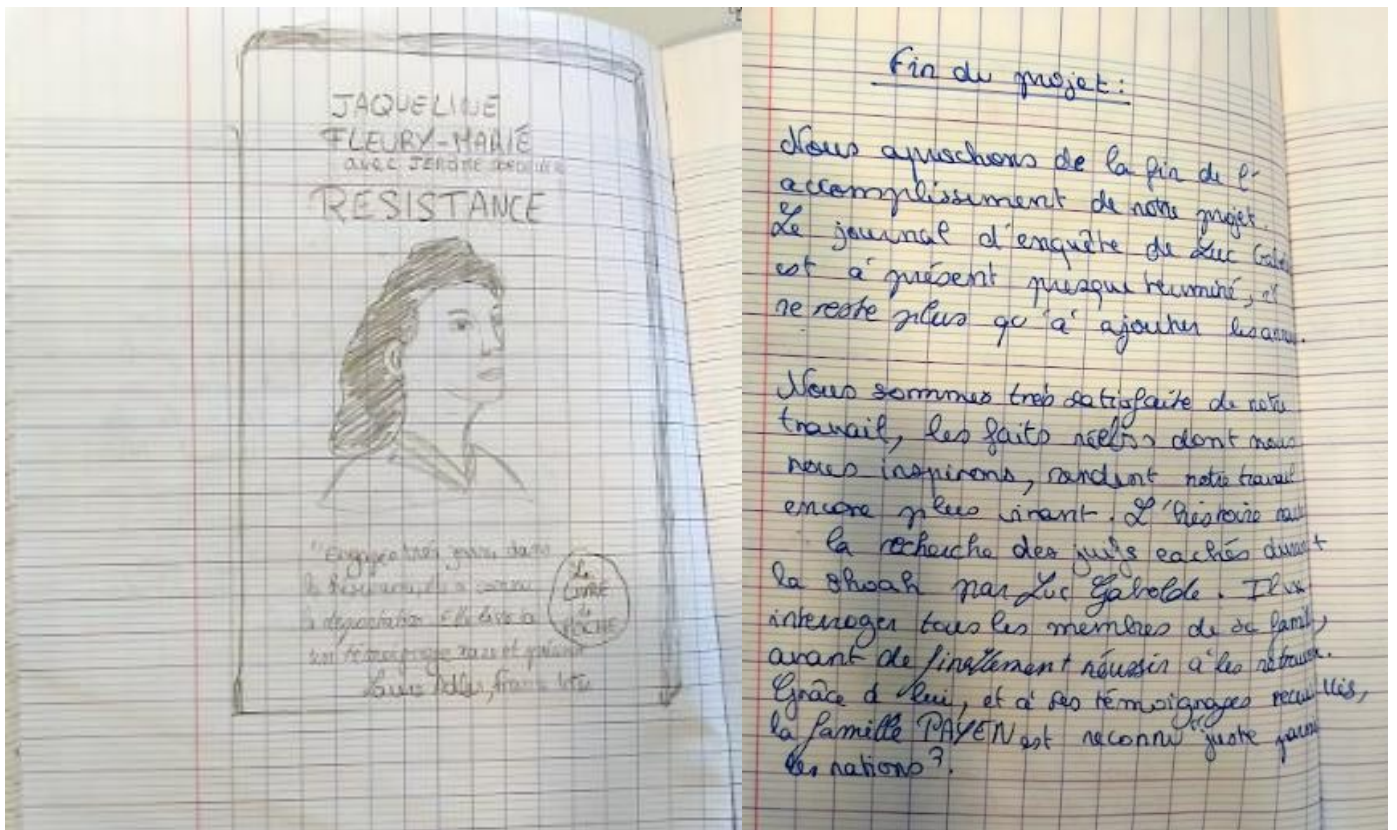 JAQUELINE
FLEURY-MARIÉ
AVEC JÉRÔME
RESISTANCE
"Engagée très jeune dans
la Résistance, a connu
la déportation. Elle livre ici
son témoignage rare et
Laure Adler, France Inter
Le
LIVRE
de
POCHE
Fin du projet :
Nous aprochons de la fin de l'-
accomplissement de notre projet.
Le journal d'enquête de Luc
est à présent presque terminé, il
ne reste plus qu'à ajouter les
Nous sommes très satisfaite de notre
travail, les faits réels dont nous
nous inspirons, rendent notre travail
encore plus vivant. L'histoire
la recherche des juifs cachés durant
la shoah par Luc Gabolde. Il va
interroger tous les membres de sa famille,
avant de finallement réussir à les retrouver.
Grâce à lui, et à ses témoignages recueillis,
la famille PAYEN est reconnu "juste parmi
les nations".